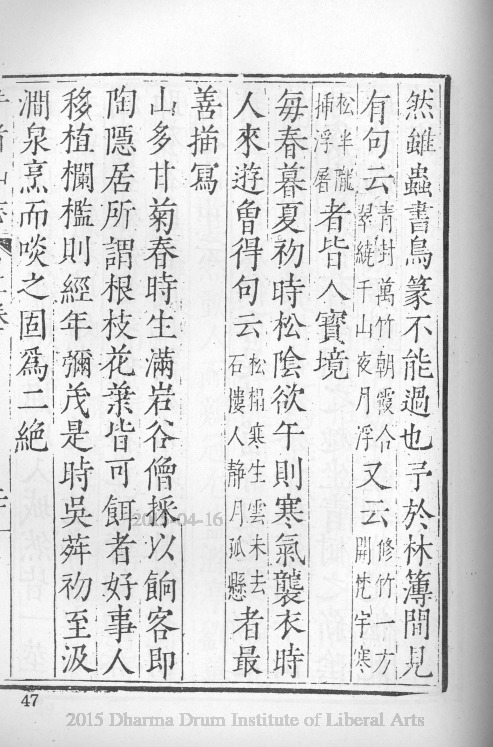 然雖蟲書鳥篆不能過也予於林簿間見
有句云青封萬竹朝霞合翠繞千山夜月浮又云修竹一方開梵宇寒
松半隴插浮屠者皆入寳境
每春暮夏初時松陰欲午則寒氣襲衣時
人來遊曾得句云松榻寒生雲未去石樓人静月孤懸者最
善描寫
山多甘菊春時生滿岩谷僧採以餉客即
陶隱居所謂根枝花葉皆可餌者好事人
移植欄檻則經年彌茂是時吳荈初至汲
澗泉烹而啖之固爲二絶
47
2015 Dharma Drum Institute of Liberal Arts